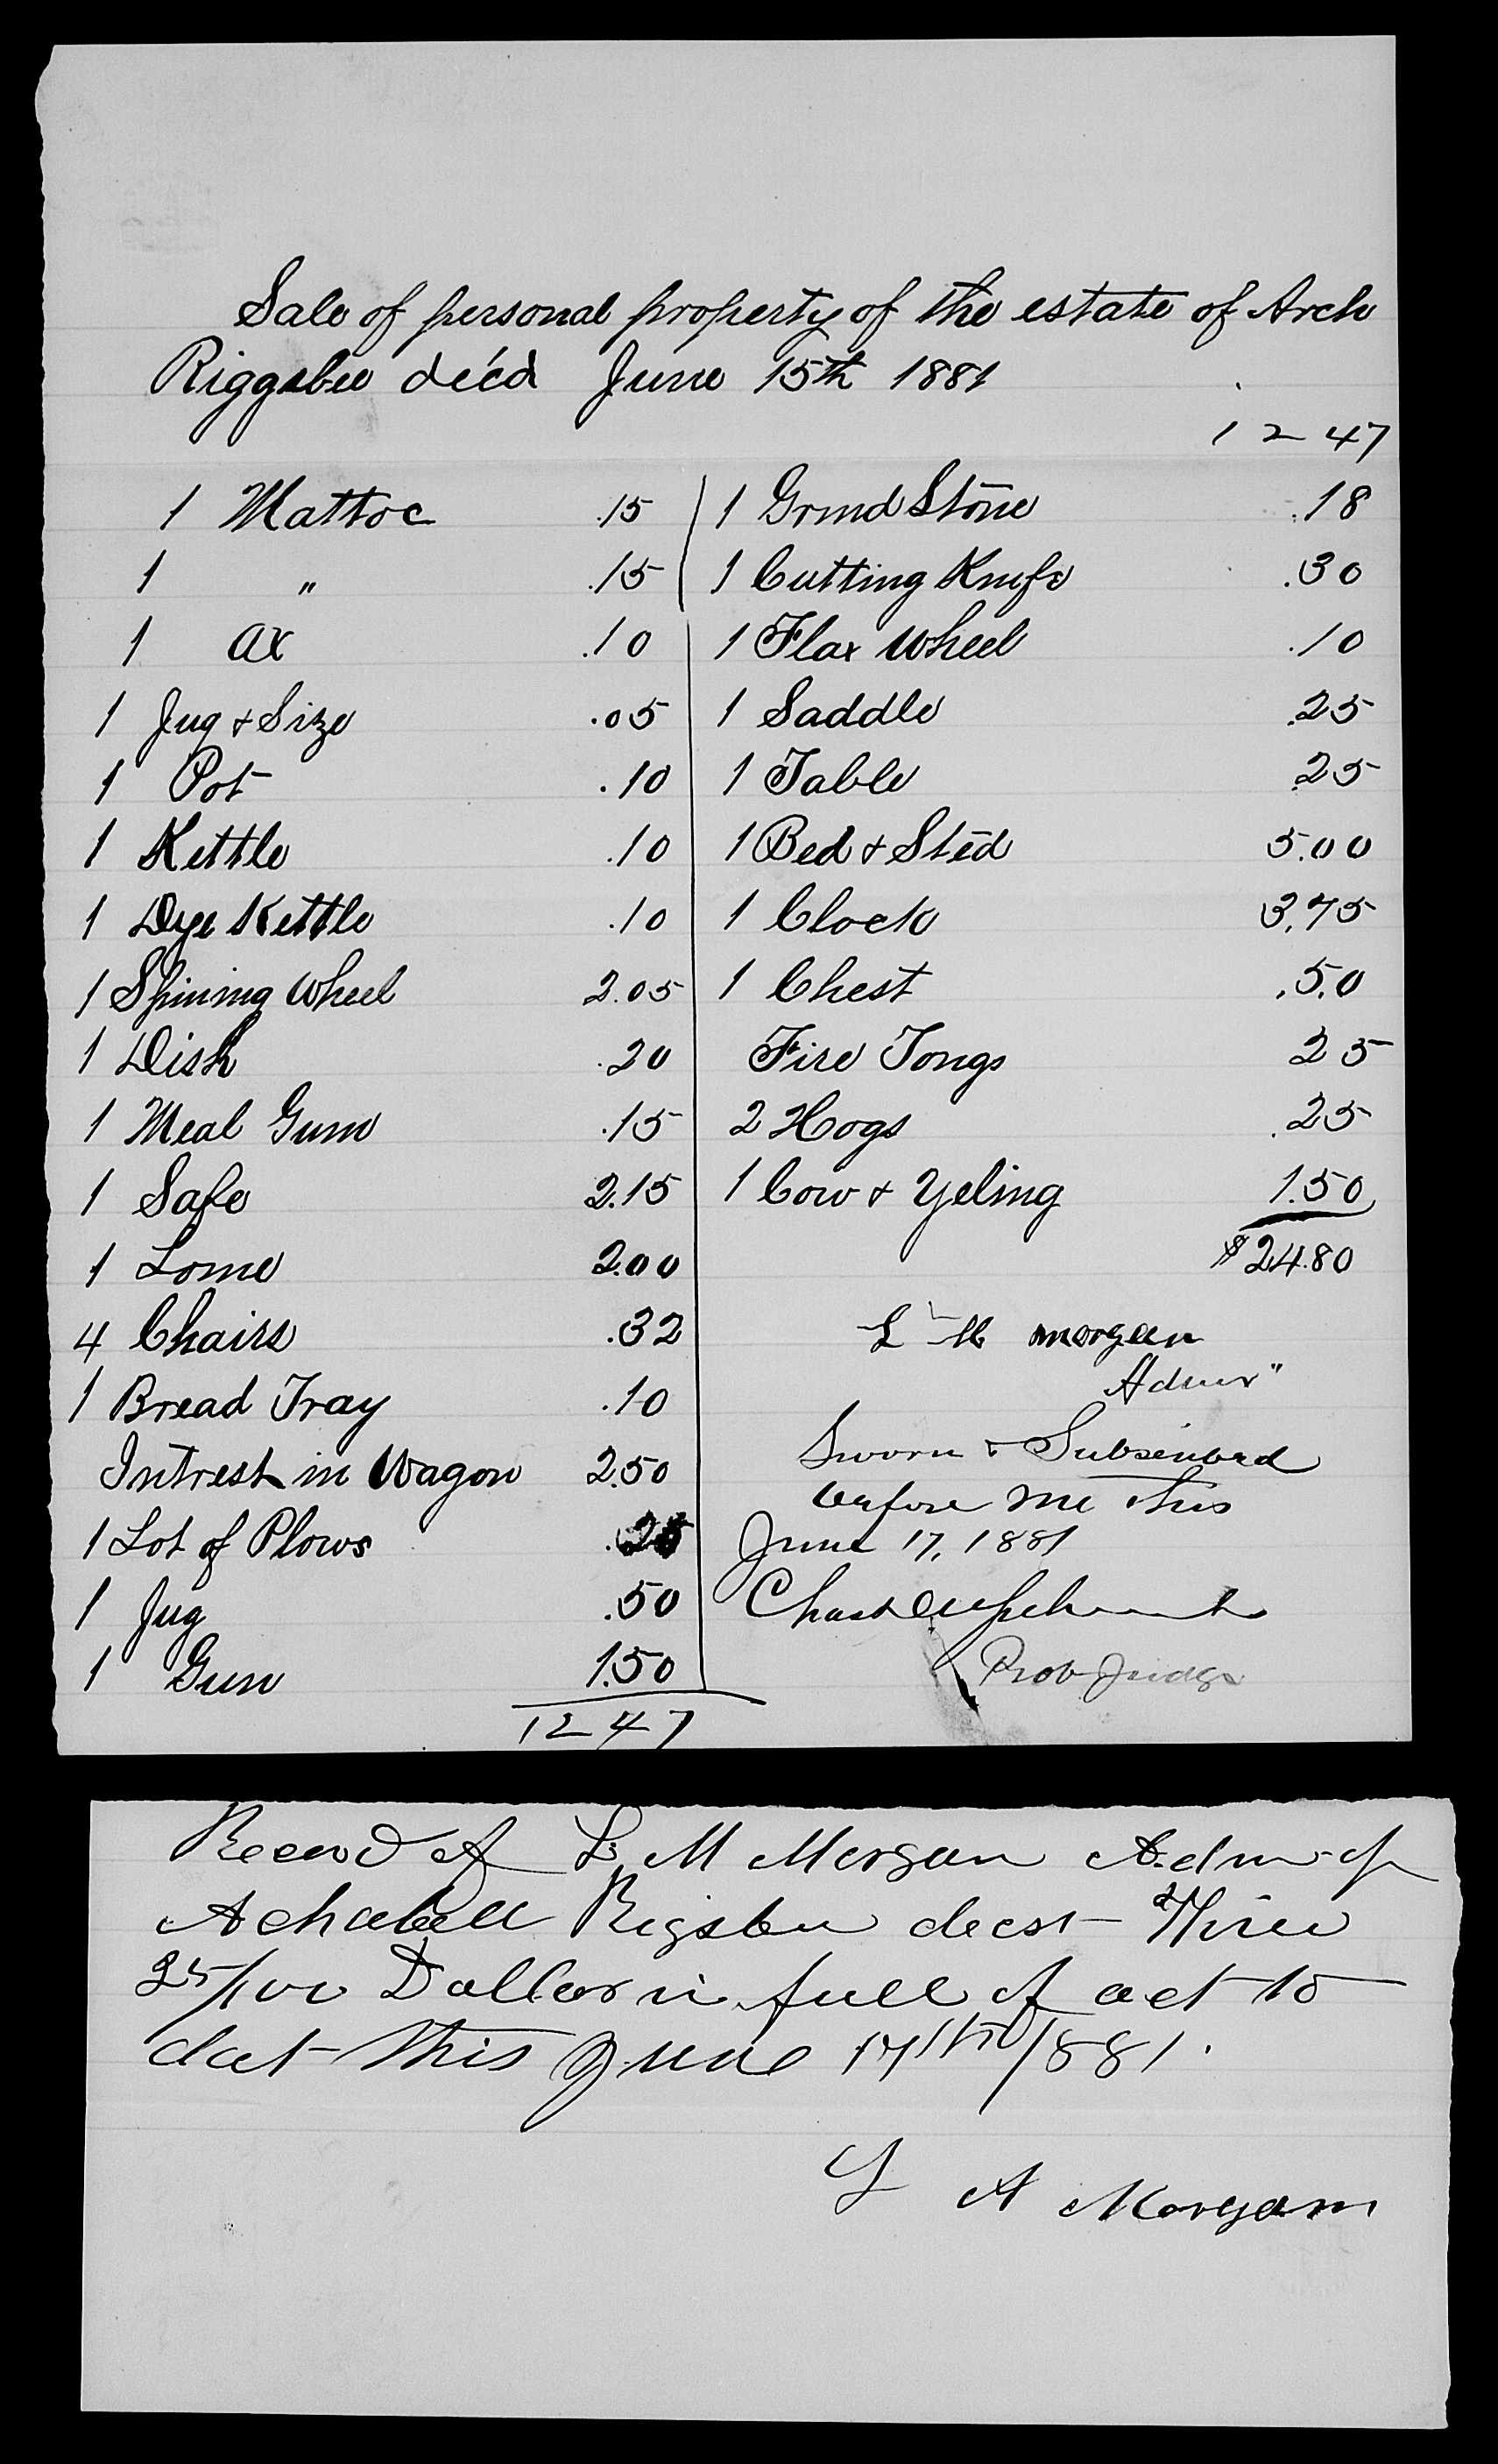 Sale of personal property of the estate of Arch
Riggsbee dec'd June 15th 1881
12 47
1 Mattoc .15
1 " .15
1 ax .10
1 Jug & Size .05
1 Pot .10
1 Kettle .10
1 Dye Kettle .10
1 Spining Wheel 2.05
1 Dish .20
1 Meal Gum .15
1 Safe 2.15
1 Lome 2.00
4 Chairs .32
1 Bread Tray .10
Intrest in Wagon 2.50
1 Lot of Plows .25
1 Jug .50
1 Gun 1.50
12 47
1 Grind Stone .18
1 Cutting Knife .30
1 Flax Wheel .10
1 Saddle .25
1 Table .25
1 Bed & Sted 5.00
1 Clock 3.75
1 Chest .50
Fire Tongs 25
2 Hogs .25
1 Cow & Yeling 1.50
$24.80
L M morgan
Admr"
Sworn & Subscribed
before me this
June 17, 1881
Prob Judge
Recevd of L M Morgan Adm of
Rigsbee decst Three
25/100 Dollars in full of act to
dat this June 17th 1881.
L A Morgam